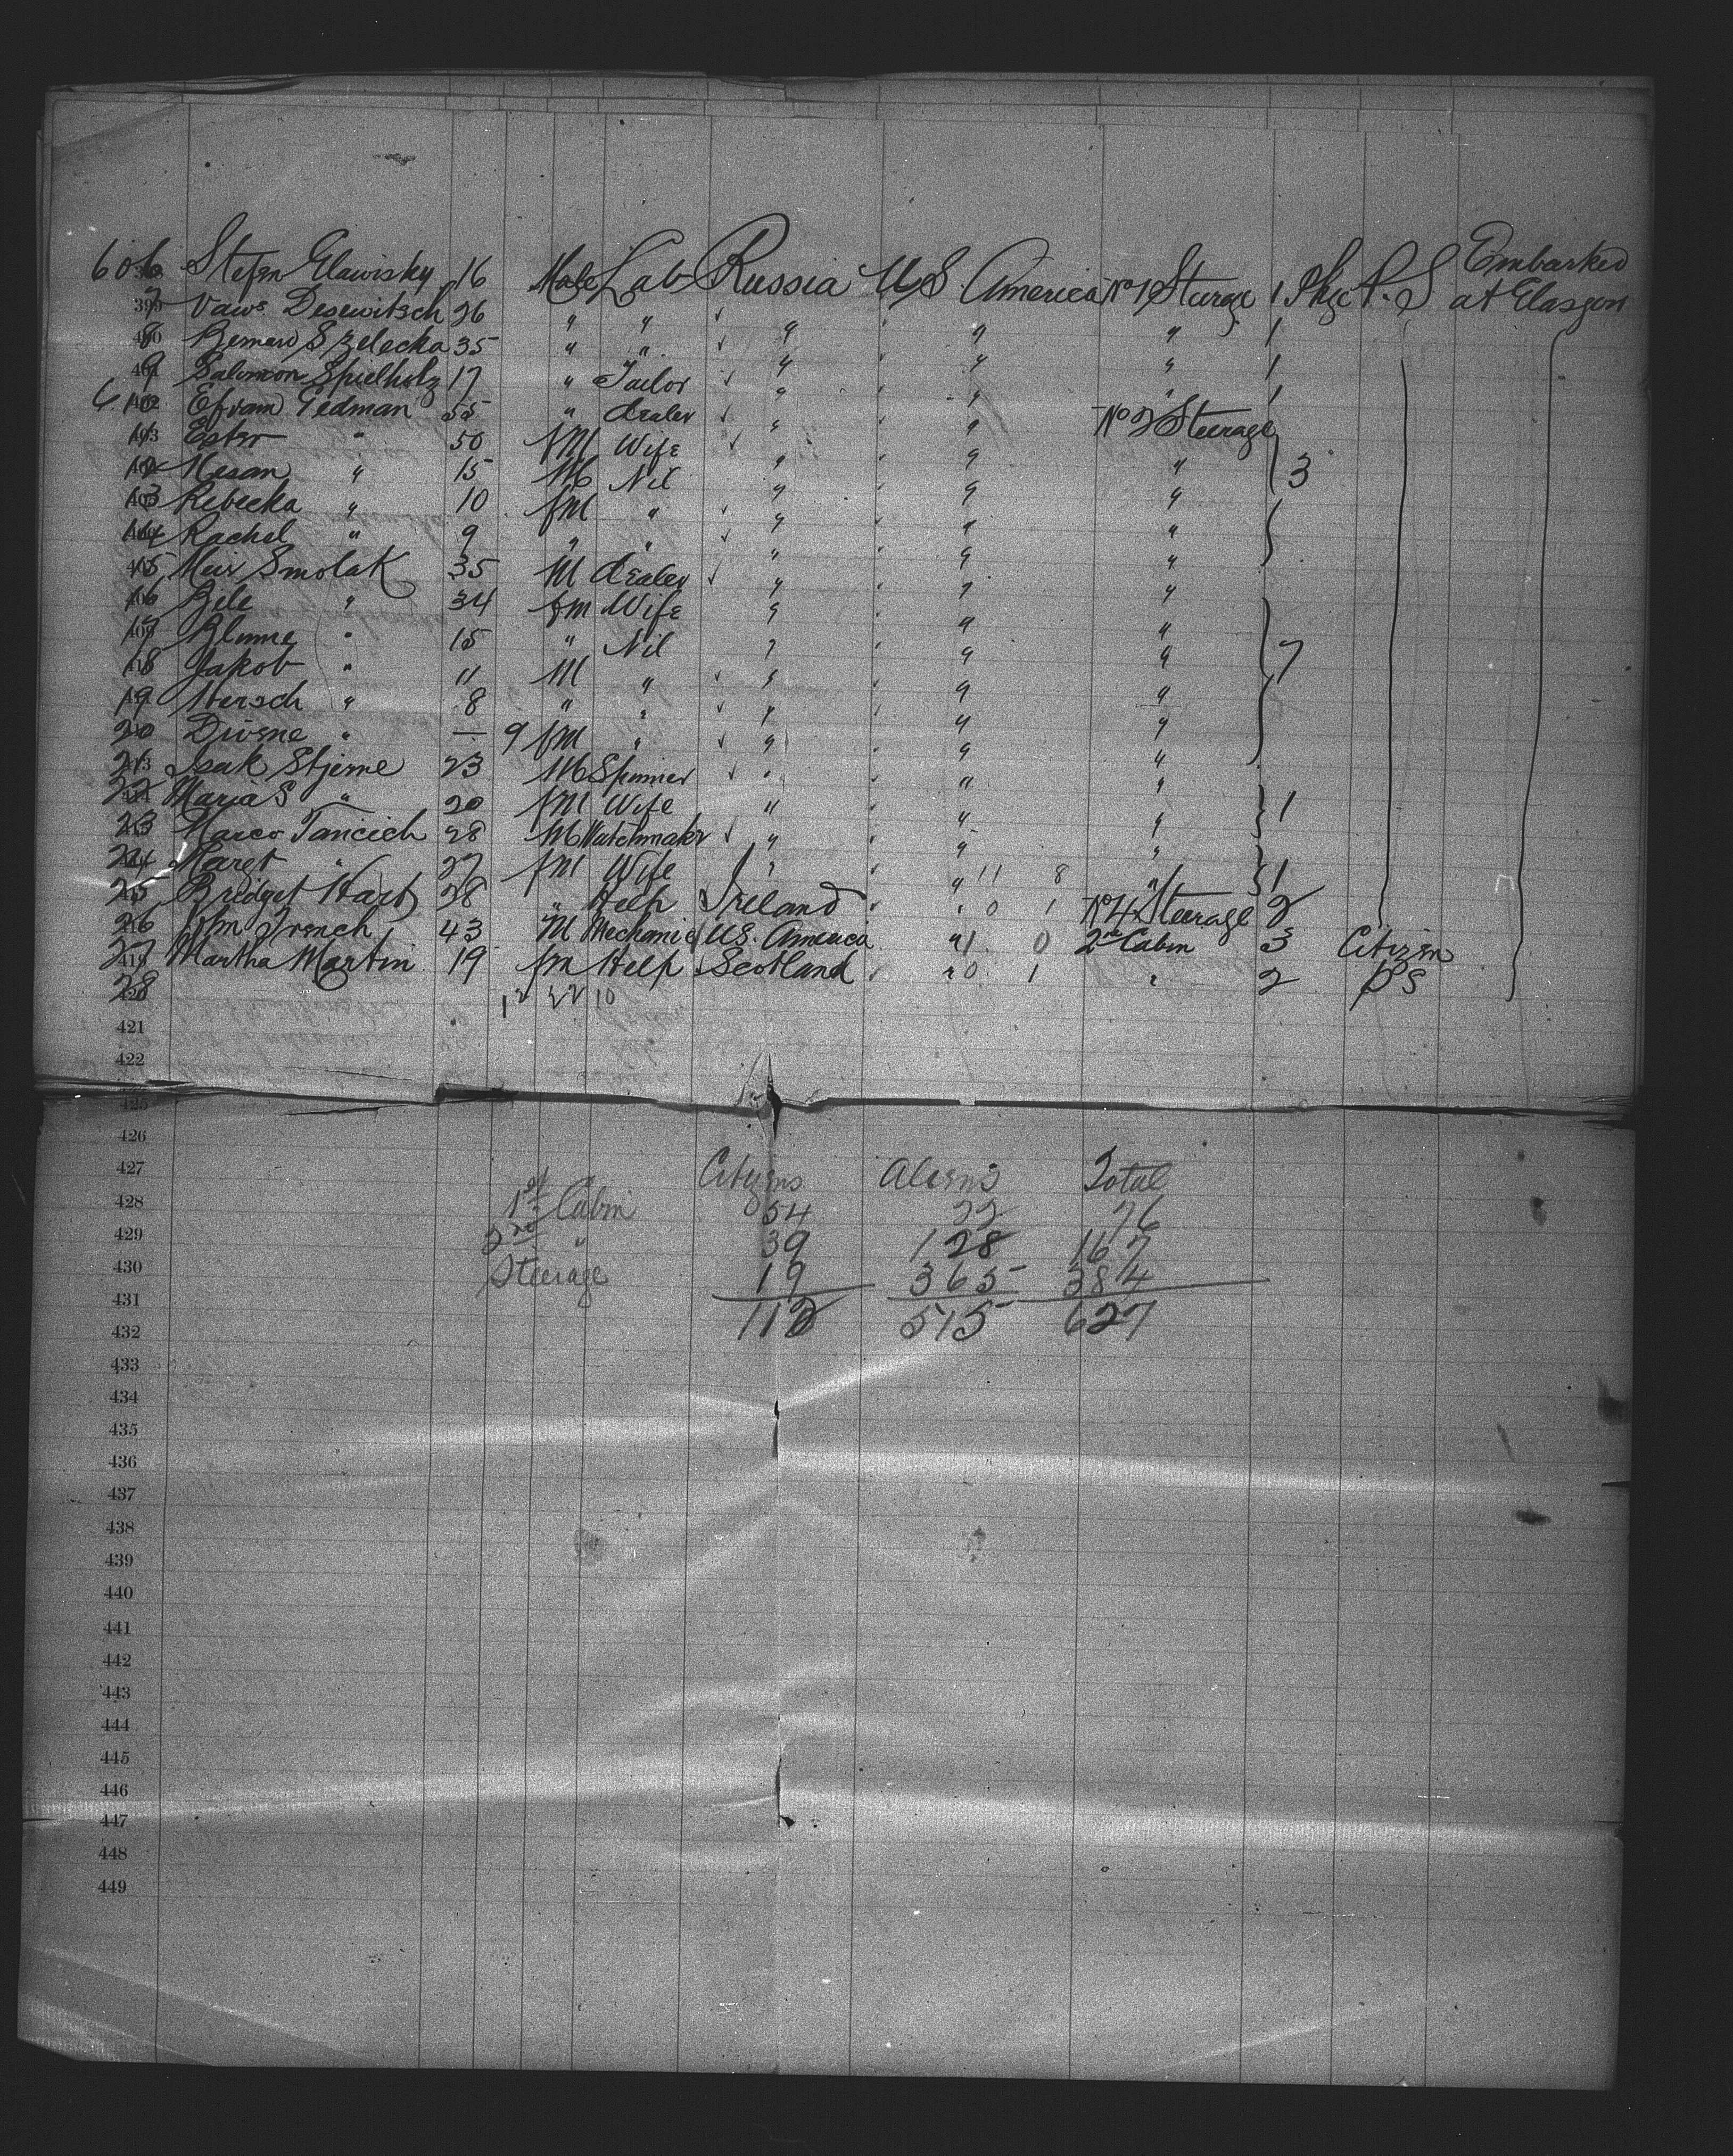 606 Stefan Glawisky 16 Male Lab Russia U.S. America No 1 Steerge 1 Pkge P.S Embarked at Glasgow
399 7 Vaws Desewitsch 26 " " " " " 1
8 Bernard Szelecka 35 " " " " " 1
9 Salomon Spielholz 17 " Tailor " " " 1
610 Efraim Gedman 55 " dealer " " No 2 Steerage
11 Ester " 50 fM Wife " " "
12 " 15 M Nil " " " 3
13 Rebecka " 10 fM " " " "
14 Rachel " 9 " " " " "
15 Meir Smolak 35 M dealer " " "
16 Bele " 34 fm Wife " " "
17 Blume " 15 " Nil " " "
18 Jakob " 11 M " " " " 7
19 Hersch " 8 " " " " "
20 Divene " — 9 fm " " " "
21 Isak Stjerne 23 M Spinner " " "
22 Maria S " 20 fM Wife " " " 1
23 Marco Tancich 28 M Watchmakr " " "
24 Margt " 27 fM Wife " " 11 8 " 1
25 Bridget Hart 28 " Help Ireland " 0 1 No 4 Steerage 2
26 John French 43 M Mechanic U.S. America " 1 0 2nd Cabin 3 Citizen
27 419 Martha Martin 19 fm Help Scotland " 0 1 " 2 PS
28 420
421
422
425
426
427 Citizens Aliens Total
428 1st Cabin 54 22 76
429 2nd " 39 128 167
430 Steerage 19 365 384
431 112 515 627
432
433
434
435
436
437
438
439
440
441
442
443
444
445
446
447
448
449